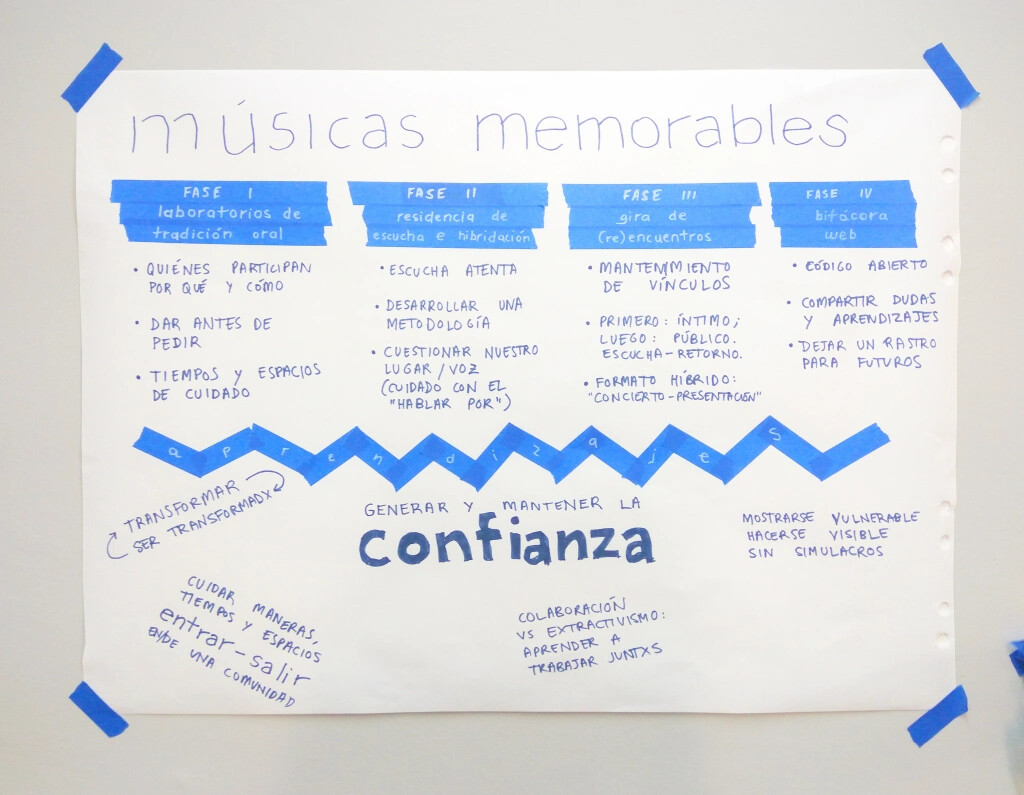 músicas memorables
FASE I
laboratorios de
tradición oral
• QUIÉNES PARTICIPAN
POR QUÉ Y CÓMO
• DAR ANTES DE
PEDIR
• TIEMPOS Y ESPACIOS
DE CUIDADO
FASE II
residencia de
escucha e hibridación
• ESCUCHA ATENTA
• DESARROLLAR UNA
METODOLOGÍA
• CUESTIONAR NUESTRO
LUGAR/VOZ
(CUIDADO CON EL
"HABLAR POR")
FASE III
gira de
(re)encuentros
• MANTENIMIENTO
DE VÍNCULOS
• PRIMERO: ÍNTIMO;
LUEGO: PÚBLICO.
ESCUCHA-RETORNO.
• FORMATO HÍBRIDO:
"CONCIERTO-PRESENTACIÓN"
FASE IV
bitácora
web
• CÓDIGO ABIERTO
• COMPARTIR DUDAS
Y APRENDIZAJES
• DEJAR UN RASTRO
PARA FUTUROS
aprendizajes
TRANSFORMAR
SER TRANSFORMADX
GENERAR Y MANTENER LA
confianza
MOSTRARSE VULNERABLE
HACERSE VISIBLE
SIN SIMULACROS
CUIDAR MANERAS,
TIEMPOS Y ESPACIOS
entrar-salir
EN/DE UNA COMUNIDAD
COLABORACIÓN
VS EXTRACTIVISMO:
APRENDER A
TRABAJAR JUNTXS